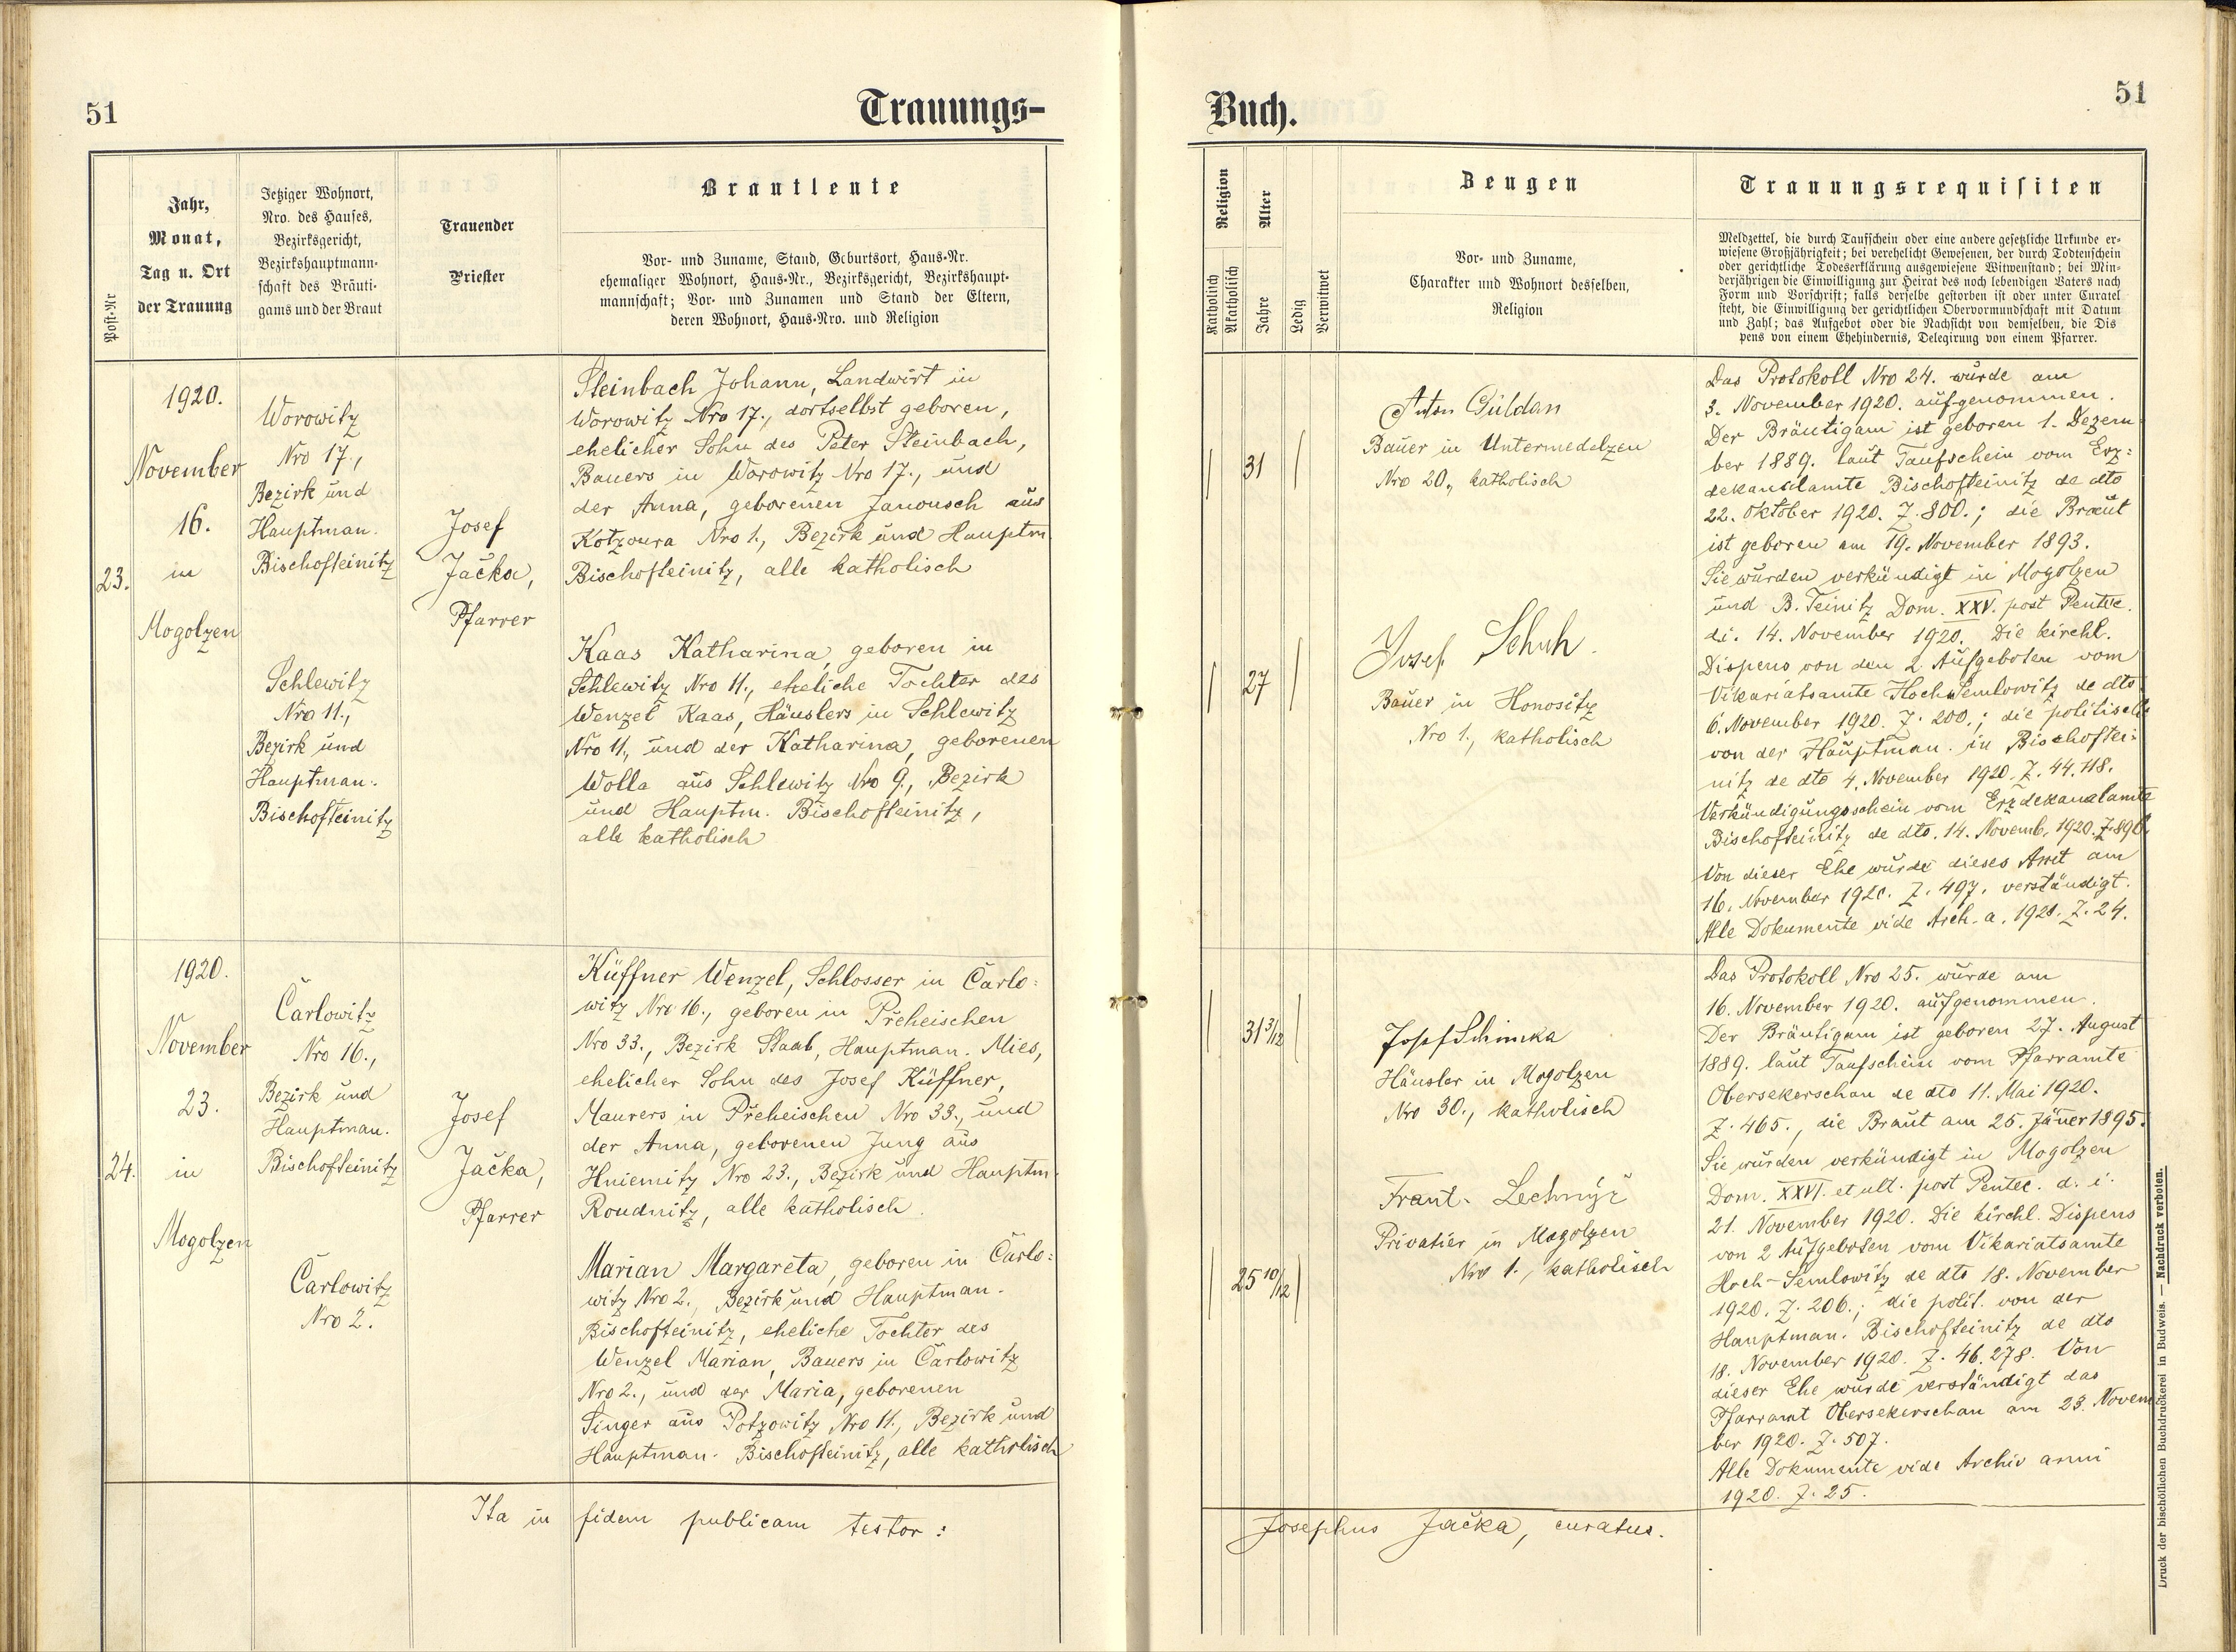 51
Trauungs-
Post-Nr
Jahr,
Monat,
Tag u. Ort
der Trauung
Jetziger Wohnort,
Nro. des Hauses,
Bezirksgericht,
Bezirkshauptmann-
schaft des Bräuti-
gams und der Braut
Trauender
Priester
Brautleute
Vor- und Zuname, Stand, Geburtsort, Haus-Nr.
ehemaliger Wohnort, Haus-Nr., Bezirksgericht, Bezirkshaupt-
mannschaft; Vor- und Zunamen und Stand der Eltern,
deren Wohnort, Haus-Nro. und Religion
23.
1920.
November
16.
in
Mogolzen
Worowitz
Nro 17.,
Bezirk und
Hauptman.
Bischofteinitz
Schlewitz
Nro 11.,
Bezirk und
Hauptman.
Bischofteinitz
Josef
Jačka,
Pfarrer
Steinbach Johann, Landwirt in
Worowitz Nro 17., dortselbst geboren,
ehelicher Sohn des Peter Steinbach,
Bauers in Worowitz Nro 17., und
der Anna, geborenen Janousch aus
Kotzoura Nro 1., Bezirk und Hauptm.
Bischofteinitz, alle katholisch
Kaas Katharina, geboren in
Schlewitz Nro 11., eheliche Tochter des
Wenzel Kaas, Häuslers in Schlewitz
Nro 11., und der Katharina, geborenen
Wolla aus Schlewitz Nro 9., Bezirk
und Hauptm. Bischofteinitz,
alle katholisch
24.
1920.
November
23.
in
Mogolzen
Čarlowitz
Nro 16.,
Bezirk und
Hauptman.
Bischofteinitz
Čarlowitz
Nro 2.
Josef
Jačka,
Pfarrer
Küffner Wenzel, Schlosser in Čarlo=
witz Nro 16., geboren in Přeheischen
Nro 33., Bezirk Staab, Hauptman. Mies,
ehelicher Sohn des Josef Küffner,
Maurers in Přeheischen Nro 33., und
der Anna, geborenen Jung aus
Hniemitz Nro 23., Bezirk und Hauptm.
Roudnitz, alle katholisch.
Marian Margareta, geboren in Čarlo=
witz Nro 2., Bezirk und Hauptman.
Bischofteinitz, eheliche Tochter des
Wenzel Marian, Bauers in Čarlowitz
Nro 2., und der Maria, geborenen
Singer aus Potzowitz Nro 11., Bezirk und
Hauptman. Bischofteinitz, alle katholisch
Ita in fidem publicam testor:
51
Buch.
Religion
Katholisch
Akatholisch
Alter
Jahre
Ledig
Verwitwet
Zeugen
Vor- und Zuname,
Charakter und Wohnort desselben,
Religion
Trauungsrequisiten
Meldzettel, die durch Taufschein oder eine andere gesetzliche Urkunde er-
wiesene Großjährigkeit; bei verehelicht Gewesenen, der durch Todtenschein
oder gerichtliche Todeserklärung ausgewiesene Witwenstand; bei Min-
derjährigen die Einwilligung zur Heirat des noch lebendigen Vaters nach
Form und Vorschrift; falls derselbe gestorben ist oder unter Curatel
steht, die Einwilligung der gerichtlichen Obervormundschaft mit Datum
und Zahl; das Aufgebot oder die Nachsicht von demselben, die Dis
pens von einem Ehehindernis, Delegirung von einem Pfarrer.
31
Anton Güldan
Bauer in Untermedelzen
Nro 20., katholisch
27
Josef Schuh.
Bauer in Honositz
Nro 1., katholisch
Das Protokoll Nro 24. wurde am
3. November 1920. aufgenommen.
Der Bräutigam ist geboren 1. Dezem
ber 1889. laut Taufschein vom Erz=
dekanalamte Bischofteinitz de dto
22. Oktober 1920. Z. 800.; die Braut
ist geboren am 19. November 1893.
Sie wurden verkündigt in Mogolzen
und B. Teinitz Dom. XXV. post Pentec.
di. 14. November 1920. Die kirchl.
Dispens von den 2 Aufgeboten vom
Vikariatsamte Hoch Semlowitz de dto
6. November 1920. Z. 200.; die politische
von der Hauptman. in Bischoftei=
nitz de dto 4. November 1920. Z. 44.118.
Verkündigungsschein vom Erzdekanalamte
Bischofteinitz de dto. 14. Novemb. 1920. Z. 890.
Von dieser Ehe wurde dieses Amt am
16. November 1920. Z. 497. verständigt.
Alle Dokumente vide Arch. a. 1920. Z. 24.
31 3/12
Josef Schimka
Häusler in Mogolzen
Nro 30., katholisch
Frant. Lechnýř
Privatier in Mogolzen
Nro 1., katholisch
25 10/12
Das Protokoll Nro 25. wurde am
16. November 1920. aufgenommen.
Der Bräutigam ist geboren 27. August
1889. laut Taufschein vom Pfarramte
Obersekerschan de dto 11. Mai 1920.
Z. 465., die Braut am 25. Jäner 1895.
Sie wurden verkündigt in Mogolzen
Dom. XXVI. et ult. post Pentec. d. i.
21. November 1920. Die kirchl. Dispens
von 2 Aufgeboten vom Vikariatsamte
Hoch-Semlowitz de dto 18. November
1920. Z. 206.; die polit. von der
Hauptman. Bischofteinitz de dto
18. November 1920. Z. 46.278. Von
dieser Ehe wurde verständigt das
Pfarramt Obersekerschan am 23. Novem
ber 1920. Z. 507.
Alle Dokumente vide Archiv anni
1920. Z. 25.
Josephus Jačka, curatus.
Druck der bischöflichen Buchdruckerei in Budweis. — Nachdruck verboten.